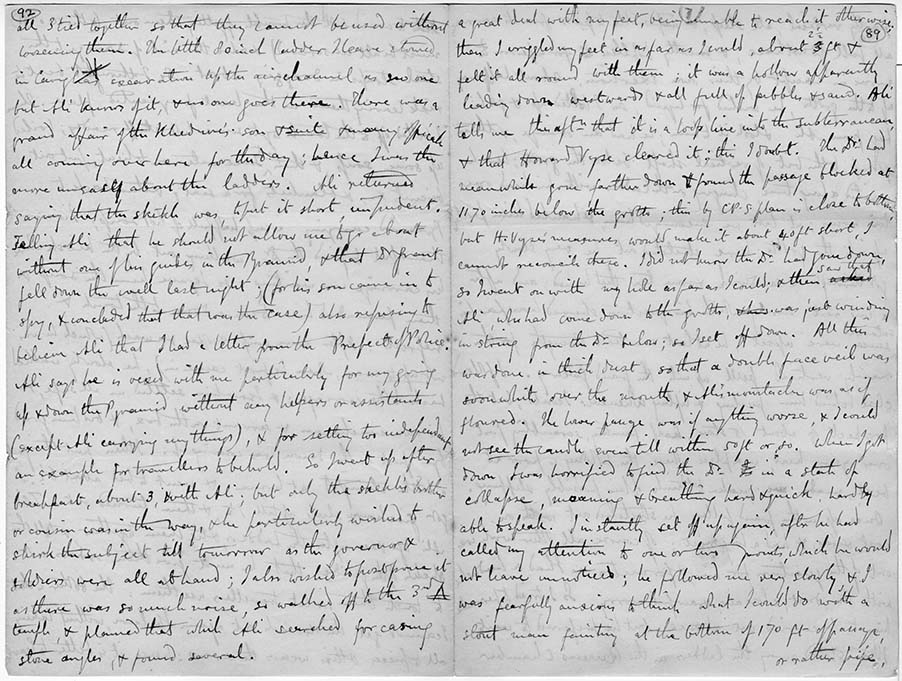 92
all 3 tied together so that they cannot be used without
loosening them. The little 80 inch ladder I leave stowed
in Caviglia's excavation up the air channel as no one
but Ali knows of it, & no one goes there. There was a
grand affair of the Khedive's son & suite & many officials
all coming over here for the day; hence I was the
more uneasy about the ladders. Ali returned
saying that the sheikh was to put it short, impudent.
Telling Ali that he should not allow me to go about
without one of his guides in the Pyramid, & that Dr Grant
fell down the well last night; (for his son came in to
spy, & concluded that that was the case) also refusing to
believe Ali that I had a letter from the Prefect of Police.
Ali says he is vexed with me particularly for my going
up & down the Pyramid without any helpers or assistants
(except Ali carrying my things), & for setting too independent
an example for travellers to behold. So I went up after
breakfast, about 3, with Ali; but only the sheikh's brother
or cousin was in the way, & he particularly wished to
shirk the subject till tomorrow as the governor &
soldiers were all at hand; I also wished to postpone it
as there was so much noise, so walked off to the 3rd △
temple & planned that while Ali searched for casing
stone angles, & found several.
89
a great deal with my feet, being unable to reach it otherwise;
then I wriggled my feet in as far as I could, about 3 ft &
felt it all round with them; it was a hollow apparently
leading down westwards & all full of pebbles & sand. Ali
tells me this aftn that it is a loop line into the subterranean,
& that Howard Vyse cleared it; this I doubt. The Dr had
meanwhile gone farther down & found the passage blocked at
1170 inches below the grotto; this by C.P.S. plan is close to bottom
but H. Vyse's measures would make it about 40 ft short, I
cannot reconcile these. I did not know the Dr had gone down,
so I went on with my hole as far as I could; & then saw that
Ali who had come down to the grotto, was just winding
in string from the Dr below; so I set off down. All this
was done in thick dust, so that a double face veil was
soon white over the mouth, & Ali's moustache was as if
floured. The lower passage was if anything worse, & I could
not see the candle even till within 5 ft or so. When I got
down, I was horrified to find the Dr in a state of
collapse, moaning & breathing hard & quick, hardly
able to speak. I instantly set off up again, after he had
called my attention to one or two points, which he would
not leave unnoticed; he followed me very slowly, & I
was fearfully anxious to think what I could do with a
stout man fainting at the bottom of 170 ft of passage,
or rather pipe,